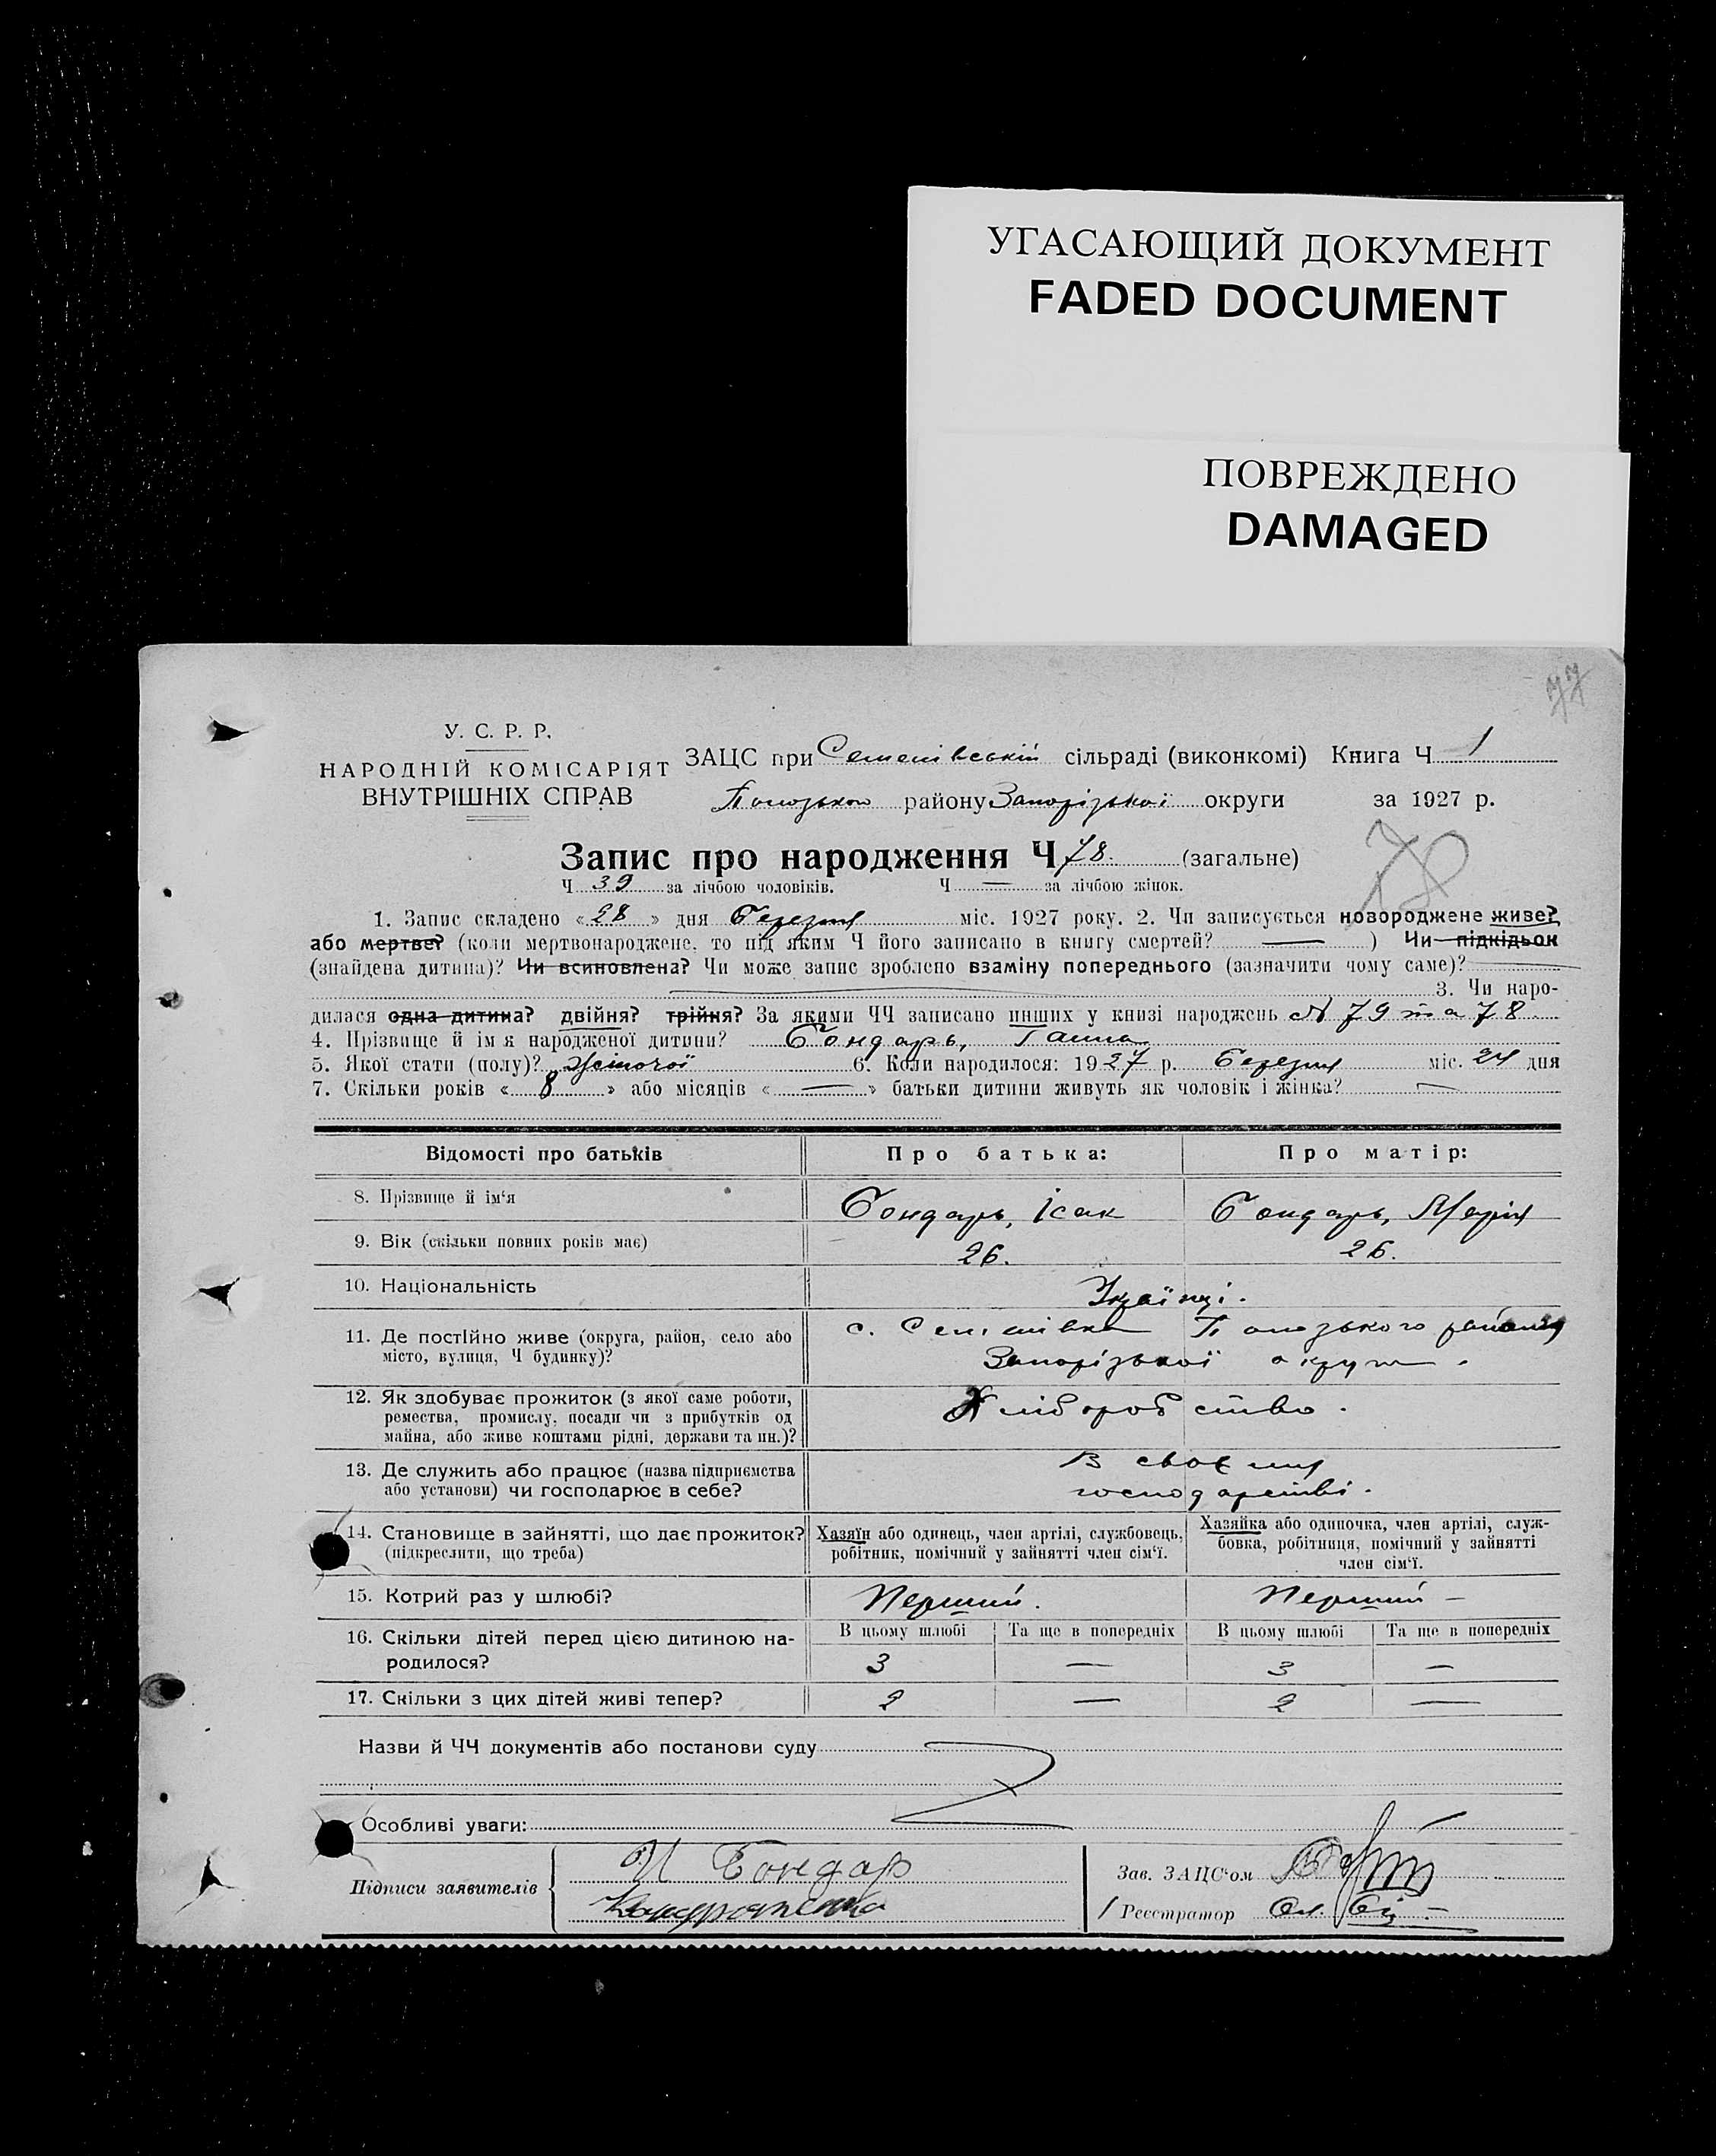 УГАСАЮЩИЙ ДОКУМЕНТ
FADED DOCUMENT
ПОВРЕЖДЕНО
DAMAGED
77
У. С. Р. Р.
НАРОДНІЙ КОМІСАРІЯТ
ВНУТРІШНІХ СПРАВ
ЗАЦС при Семенівській сільраді (виконкомі) Книга Ч 1
Пологзького району Запорізької округи за 1927 р.
Запис про народження Ч 78. (загальне)
78
Ч 39 за лічбою чоловіків. Ч — за лічбою жінок.
1. Запис складено « 28 » дня Березня міс. 1927 року. 2. Чи записується новороджене живе?
або мертве? (коли мертвонароджене, то під яким Ч його записано в книгу смертей? — ) Чи підкідьок
(знайдена дитина)? Чи всиновлена? Чи може запис зроблено взаміну попереднього (зазначити чому саме)? —
3. Чи наро-
дилася одна дитина? двійня? трійня? За якими ЧЧ записано инших у книзі народжень № 79 та 78
4. Прізвище й ім'я народженої дитини? Бондарь, Ганна
5. Якої стати (полу)? Жіночої 6. Коли народилося: 1927 р. Березня міс. 24 дня
7. Скільки років « 8 » або місяців « — » батьки дитини живуть як чоловік і жінка? —
Відомості про батьків Про батька: Про матір:
8. Прізвище й ім'я Бондарь, Ісак Бондарь, Марія
9. Вік (скільки повних років має) 26. 26.
10. Національність Українці.
11. Де постійно живе (округа, район, село або с. Семенівка Пологзького района
місто, вулиця, Ч будинку)? Запорізької округи.
12. Як здобуває прожиток (з якої саме роботи, Хліборобство.
ремества, промислу, посади чи з прибутків од
майна, або живе коштами рідні, держави та ин.)?
13. Де служить або працює (назва підприємства В своєму
або установи) чи господарює в себе? господарстві.
14. Становище в зайнятті, що дає прожиток? Хазяїн або одинець, член артілі, службовець, Хазяйка або одиночка, член артілі, служ-
(підкреслити, що треба) робітник, помічний у зайнятті член сім'ї. бовка, робітниця, помічний у зайнятті
член сім'ї.
15. Котрий раз у шлюбі? Перший. Перший —
16. Скільки дітей перед цією дитиною на- В цьому шлюбі Та ще в попередніх В цьому шлюбі Та ще в попередніх
родилося? 3 — 3 —
17. Скільки з цих дітей живі тепер? 2 — 2 —
Назви й ЧЧ документів або постанови суду
Особливі уваги:
Підписи заявителів И Бондар
Зав. ЗАЦС'ом
Реєстратор